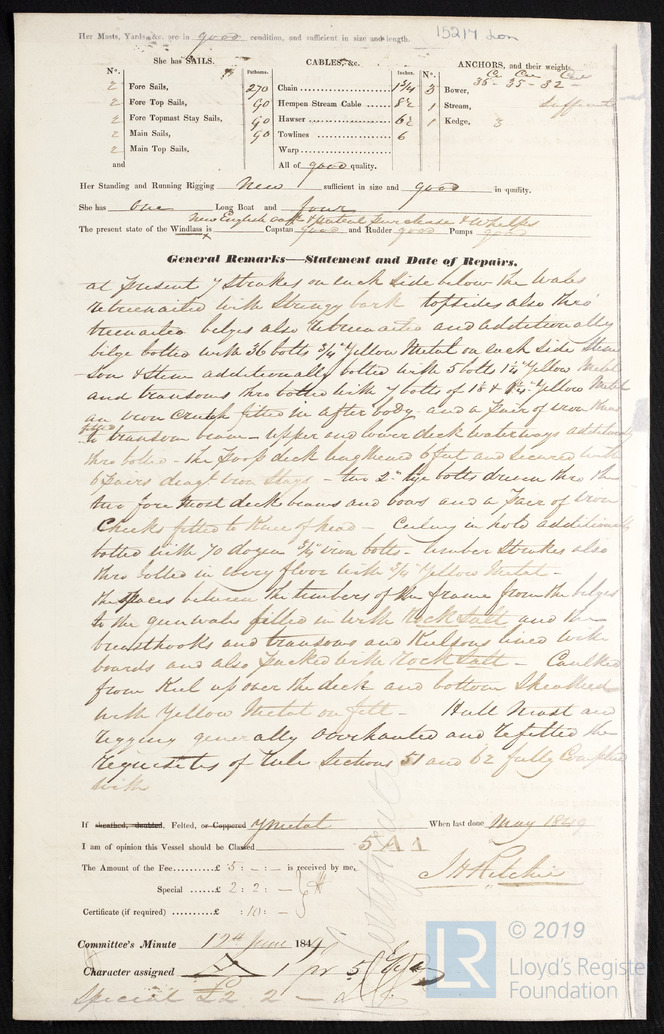 Her Masts, Yards, &c. are in good condition, and sufficient in size and length.
15217 Lon
She has SAILS. CABLES, &c. ANCHORS, and their weights.
N°. Fathoms. Inches. N°. Cwt Cwt Cwt
2 Fore Sails, 270 Chain 1 3/4 3 Bower, 36 - 35 - 32 -
2 Fore Top Sails, 90 Hempen Stream Cable 8½ 1 Stream, Sufficient
2 Fore Topmast Stay Sails, 90 Hawser 6½ 1 Kedge, 3
2 Main Sails, 90 Towlines 6
2 Main Top Sails, Warp
and All of good quality.
Her Standing and Running Rigging New sufficient in size and good in quality.
She has One Long Boat and four
New English Oak & patent Purchase & Whelps
The present state of the Windlass is Capstan good and Rudder good Pumps good
General Remarks—Statement and Date of Repairs.
at present 7 Strakes on each side below the Wales
retreenailed with Stringy bark topsides also thro'
treenailed bilges also retreenailed and additionally
bilge bolted with 36 bolts 3/4" Yellow Metal on each side Stern
Son & Stem additionally bolted with 5 bolts 1¼ Yellow Metal
and transoms thro bolted with 7 bolts of Yellow Metal
an iron Crutch fitted in after body - and a Pair of iron
fitted
to transom beam - upper and lower deck Waterways additionally
thro bolted - The Poop deck lengthened 6 feet and secured with
6 Pairs diagl iron Stays - two 2" bolts driven thro the
two fore most deck beams and bows and a Pair of iron
Cheeks fitted to Knee of head - Ceiling in hold additionally
bolted with 70 dozen 3/4" iron bolts - limber Strakes also
thro bolted in every floor with 3/4 Yellow Metal -
The spaces between the timbers of the frame from the bilges
to the gunwales filled in with Rock Salt and the
breasthooks and transoms and Keelsons lined with
boards and also packed with Rock Salt - Caulked
from Keel up over the deck and bottom Sheathed
with Yellow Metal on felt - Hull Mast and
rigging generally Overhauled and refitted the
requisites of Rule Sections 51 and 62 fully Complied
with
If sheathed, doubled, Felted, or Coppered Y Metal When last done May 1849
I am of opinion this Vessel should be Classed 5 A 1
The Amount of the Fee £ 5 : - : - is received by me,
Special £ 2 : 2 : -
J H Ritchie
Certificate (if required) £ : 10 : -
Certificate
Committee's Minute 12th June 1849
Character assigned A 1 pr 5
Special £2 2 -
LR © 2019
Lloyd's Register
Foundation